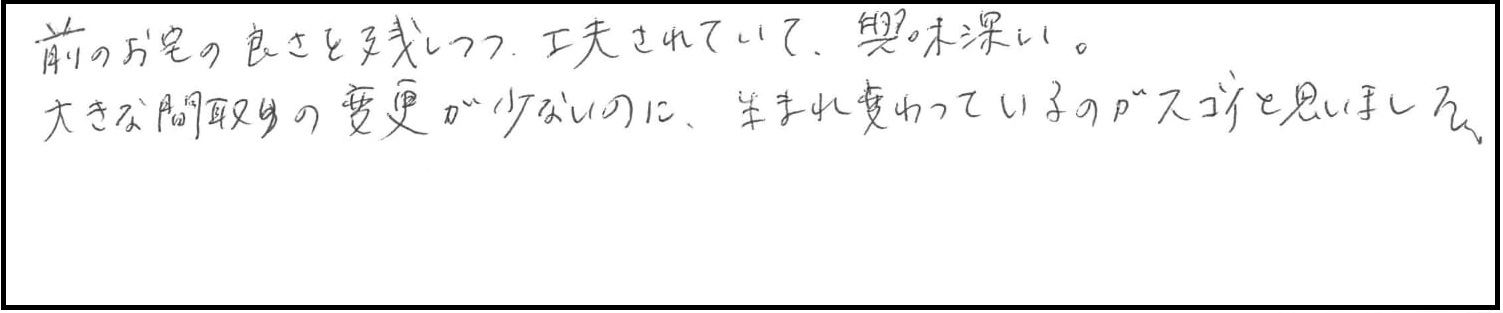 前のお宅の良さを残しつつ、工夫されていて、興味深い。
大きな間取りの変更が少ないのに、生まれ変わっているのがスゴイと思いました。